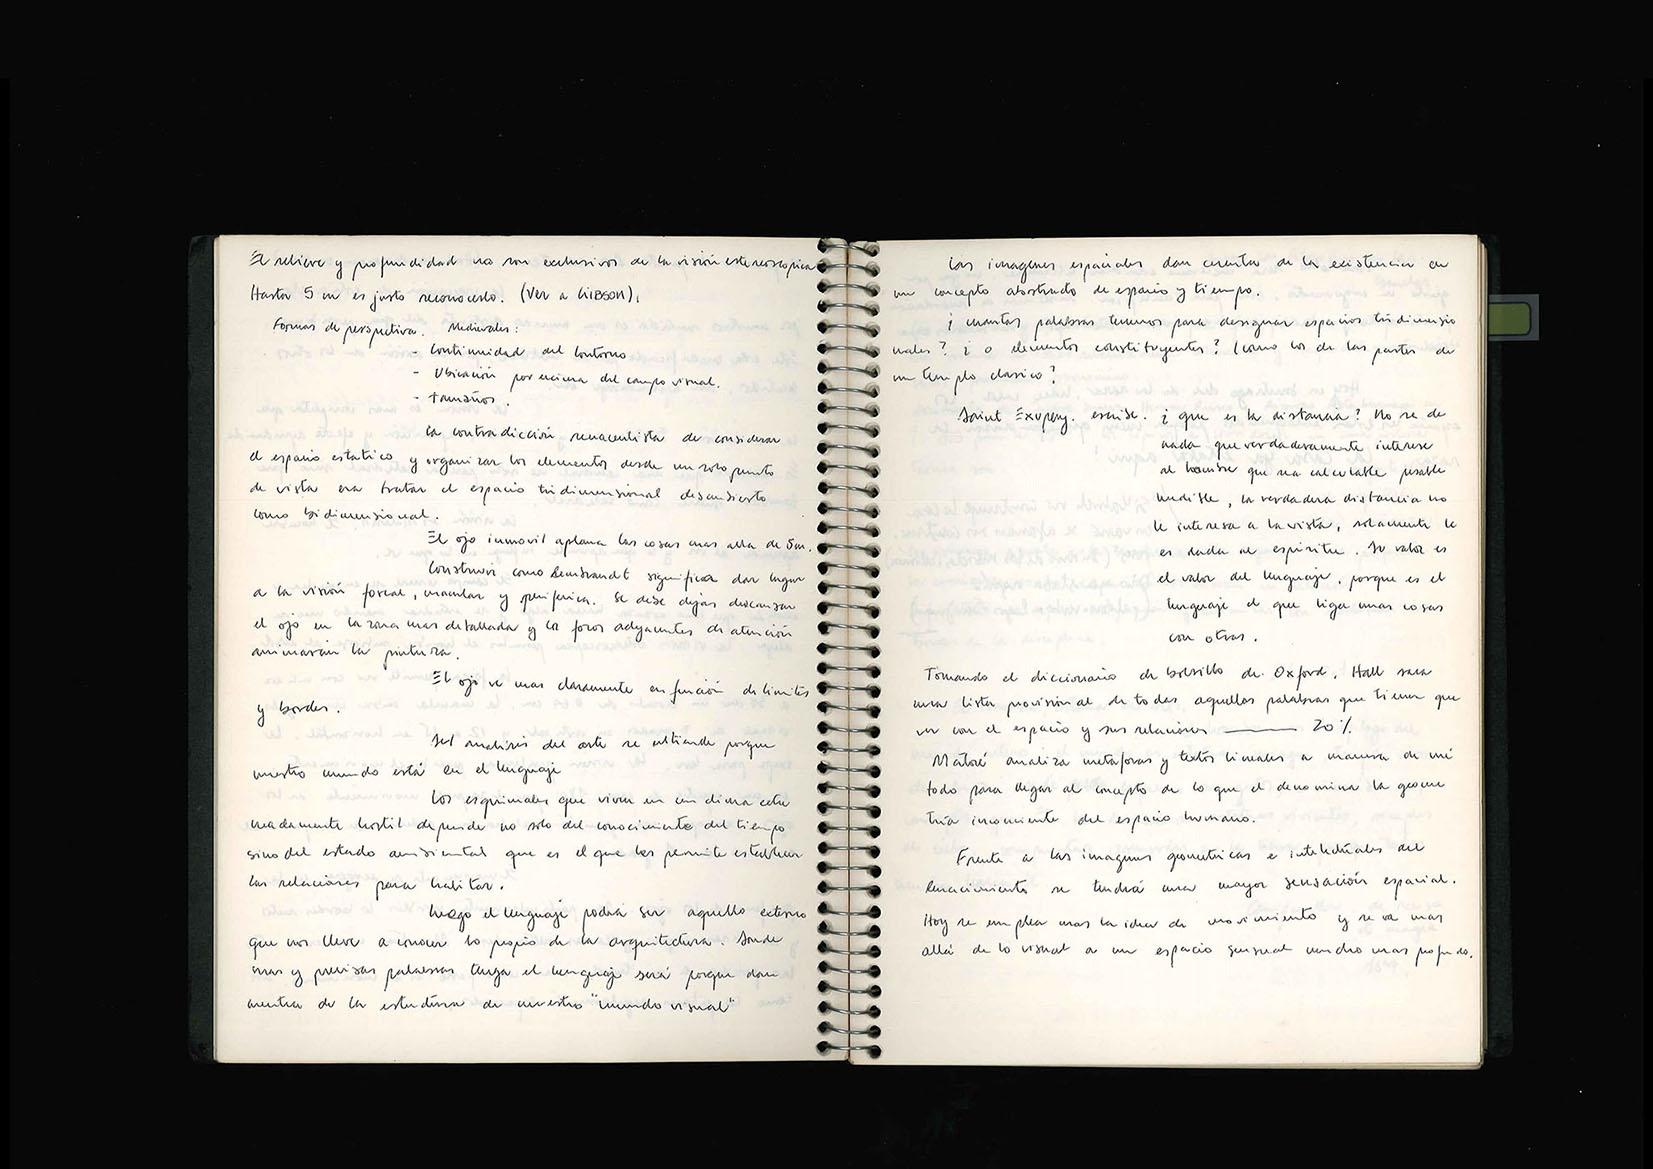 El relieve y profundidad no son exclusivos de la visión estereoscopica
Hasta 5 m es justo reconocerlo. (Ver a GIBSON).
Formas de perspectiva. Medievales:
- Continuidad del contorno
- Ubicación por encima del campo visual.
- tamaños.
La contradicción renacentista de considerar
el espacio estatico y organizar los elementos desde un solo punto
de vista era tratar el espacio tridimensional descubierto
como bidimensional.
El ojo inmovil aplana las cosas mas alla de 5m.
Construir como Rembrandt significa dar lugar
a la visión foveal, macular y periferica. Se debe dejar descansar
el ojo en la zona mas detallada y los focos adyacentes de atención
animaran la pintura.
El ojo ve mas claramente en función de limites
y bordes.
Del analisis del arte se entiende porque
nuestro mundo está en el lenguaje
Los esquimales que viven en un clima
hostil depende no solo del conocimiento del tiempo
sino del estado ambiental que es el que les permite establecer
las relaciones para habitar.
Luego el lenguaje podrá ser aquello externo
que nos lleve a conocer lo propio de la arquitectura. Donde
mas y precisas palabras tenga el lenguaje será porque dan
cuenta de la estructura de nuestro "mundo visual"
Las imagenes espaciales dan cuenta de la existencia en
un concepto abstracto de espacio y tiempo.
¿ cuantas palabras tenemos para designar espacios tridimensio
nales? ¿ o elementos constituyentes? (como los de las partes de
un templo clasico?
Saint Exupery. escribe. ¿ que es la distancia? No se de
nada que verdaderamente interese
al hombre que sea calculable pesable
medible, la verdadera distancia no
le interesa a la vista, solamente le
es dada al espiritu. Su valor es
el valor del lenguaje, porque es el
lenguaje el que liga unas cosas
con otras.
Tomando el diccionario de bolsillo de Oxford, Hall saca
una lista provisional de todas aquellas palabras que tienen que
ver con el espacio y sus relaciones ——— 20%
Matoré analiza metaforas y textos lineales a manera de mé
todo para llegar al concepto de lo que el denomina la geome
tría inconsciente del espacio humano.
Frente a las imagenes geometricas e intelectuales del
Renacimiento se tendrá una mayor sensación espacial.
Hoy se emplea mas la idea de movimiento y se va mas
allá de lo visual a un espacio sensual mucho mas profundo.